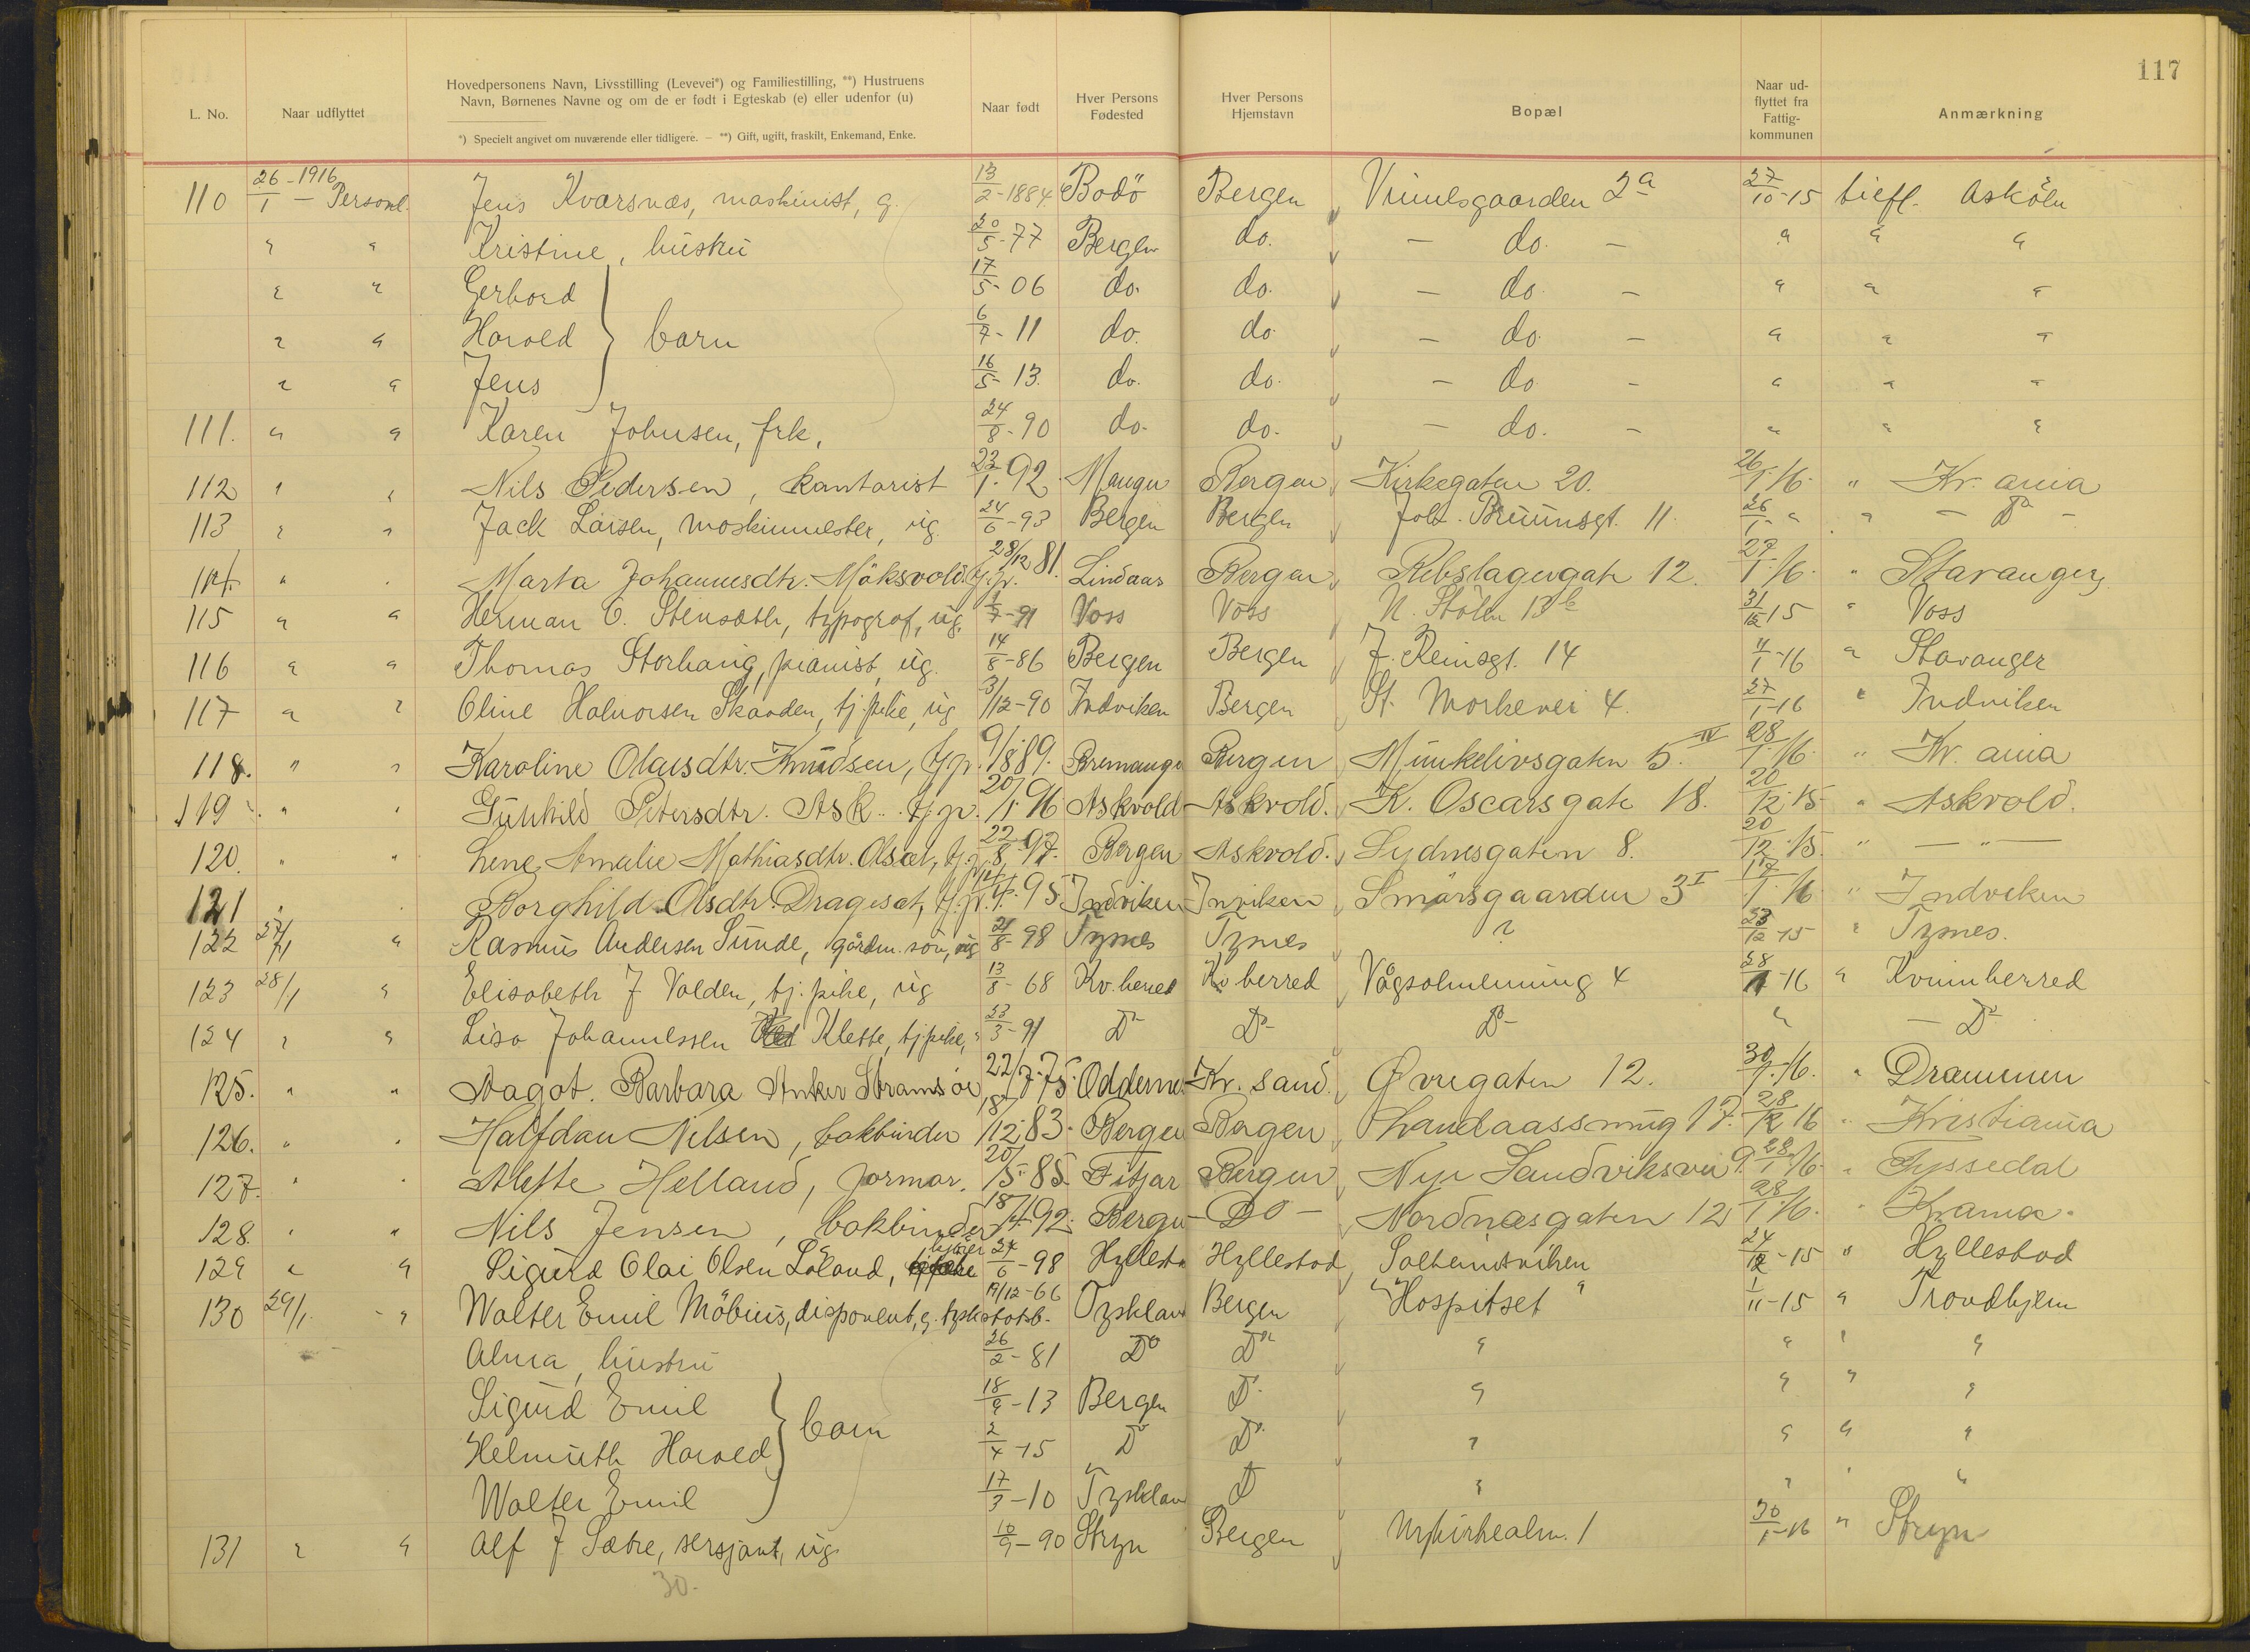 117
L. No. Naar udflyttet Hovedpersonens Navn, Livsstilling (Levevei*) og Familiestilling, **) Hustruens Navn, Børnenes Navne og om de er født i Egteskab (e) eller udenfor (u) Naar født Hver Persons Fødested Hver Persons Hjemstavn Bopæl Naar udflyttet fra Fattigkommunen Anmærkning
*) Specielt angivet om nuværende eller tidligere. — **) Gift, ugift, fraskilt, Enkemand, Enke.
110 26/1 - 1916 - Personl. Jens Kvarsnæs, maskinist, g. 13/2-1884 Bodö Bergen Vimelsgaarden 2a 27/10-15 tilfl. Asköen
" " Kristine, hustru 20/5-77 Bergen do. - do. - " " "
" " Gerhard 17/5-06 do. do. - do. - " " "
" " Harald } barn 6/7-11 do. do. - do. - " " "
" " Jens 16/5-13. do. do. - do. - " " "
111. " " Karen Johnsen, frk. 24/8-90 do. do. - do. - " " "
112 " " Nils Pedersen, kantorist 23/1-92 Manger Bergen Kirkegaten 20. 26/1-16. " Kr.ania
113 " " Jack Larsen, maskinmester, ug. 24/6-93 Bergen Bergen Joh. Bruunsgt. 11. 26/1-" " - Do -
114. " " Marta Johannesdtr. Möksvold tj.p. 28/12 81. Lindaas Bergen Rebslagergate 12. 27/1-16. " Stavanger
115 " " Herman O. Stensæth, typograf, ug. 1/7-91 Voss Voss N. Stölen 13b 31/12-15 " Voss
116 " " Thomas Storhaug, pianist, ug. 14/8-86 Bergen Bergen J. Reinsgt. 14 4/1-16 " Stavanger
117 " " Oline Halvorsen Skaaden, tj.pike, ug 3/12-90 Indviken Bergen St. Markevei 4. 27/1-16 " Indviken
118. " " Karoline Olaisdtr. Knudsen, tj.p. 9/1 89. Bremanger Bergen Munkelivsgaten 5. IV 28/1-16. " Kr.ania
119. " " Gunhild Petersdtr. Ask. tj.p. 20/1-96 Askvold Askvold. K. Oscarsgate 18. 20/12-15 " Askvold.
120. " " Lene Amalie Mathiasdtr. Olset, tj.p. 22/8-97. Bergen Askvold. Sydnesgaten 8. 20/12-15. " - " -
121 " " Borghild Olsdtr. Drageset, tj.p. 95. Indviken Inviken Smørsgaarden 3 I 17/1-16 " Indviken
122 27/1 " Rasmus Andersen Sunde, gårdm. sön, ug 21/8-98 Tysnes Tysnes ? 23/12-15 " Tysnes.
123 28/1 " Elisabeth J Valden, tj.pike, ug 13/8-68 Kv.herred Kv.herred Vågsalmenning 4 28/1-16 " Kvinnherred
124 " " Lisa Johannessen Klette, tj.pike, " 23/3-91 Do Do Do " - Do
125. " " Dagot. Barbara Anker Stramsöe, 22/7-75. Oddernes Kr.sand. Øvregaten 12. 30/1-16. " Drammen
126. " " Halfdan Nilsen, bokbinder 18/12 83. Bergen Bergen Landaassmug 17. 28/12 16 " Kristiania
127. " " Alette Helland, jormor. 20/5-85. Fitjar Bergen Nye Sandviksvei 9. 28/1-16. " Tyssedal
128. " " Nils Jensen, bokbinder 18/4 92. Bergen - Do - Nordnæsgaten 12 28/1-16. " Krania.
129 " " Sigurd Olai Olsen Löland, 24/6-98 Hyllestad Hyllestad Solheimsviken 24/12-15 " Hyllestad
130 29/1. - " Walter Emil Möbius, disponent, g. tysk statsb. 19/12-66 Tyskland Bergen "Hospitset" 1/11-15 " Trondhjem
Alma, hustru 26/2-81 Do Do " " " "
Sigurd Emil 18/9-13 Bergen Do " " " "
Helmuth Harald } barn 2/4-15 Do Do " " " "
Walter Emil 17/3-10 Tyskland Do " " " "
131 " " Alf J Sætre, sersjant, ug. 10/9-90 Stryn Bergen Nykirkealm. 1 30/1-16 " Stryn
30.